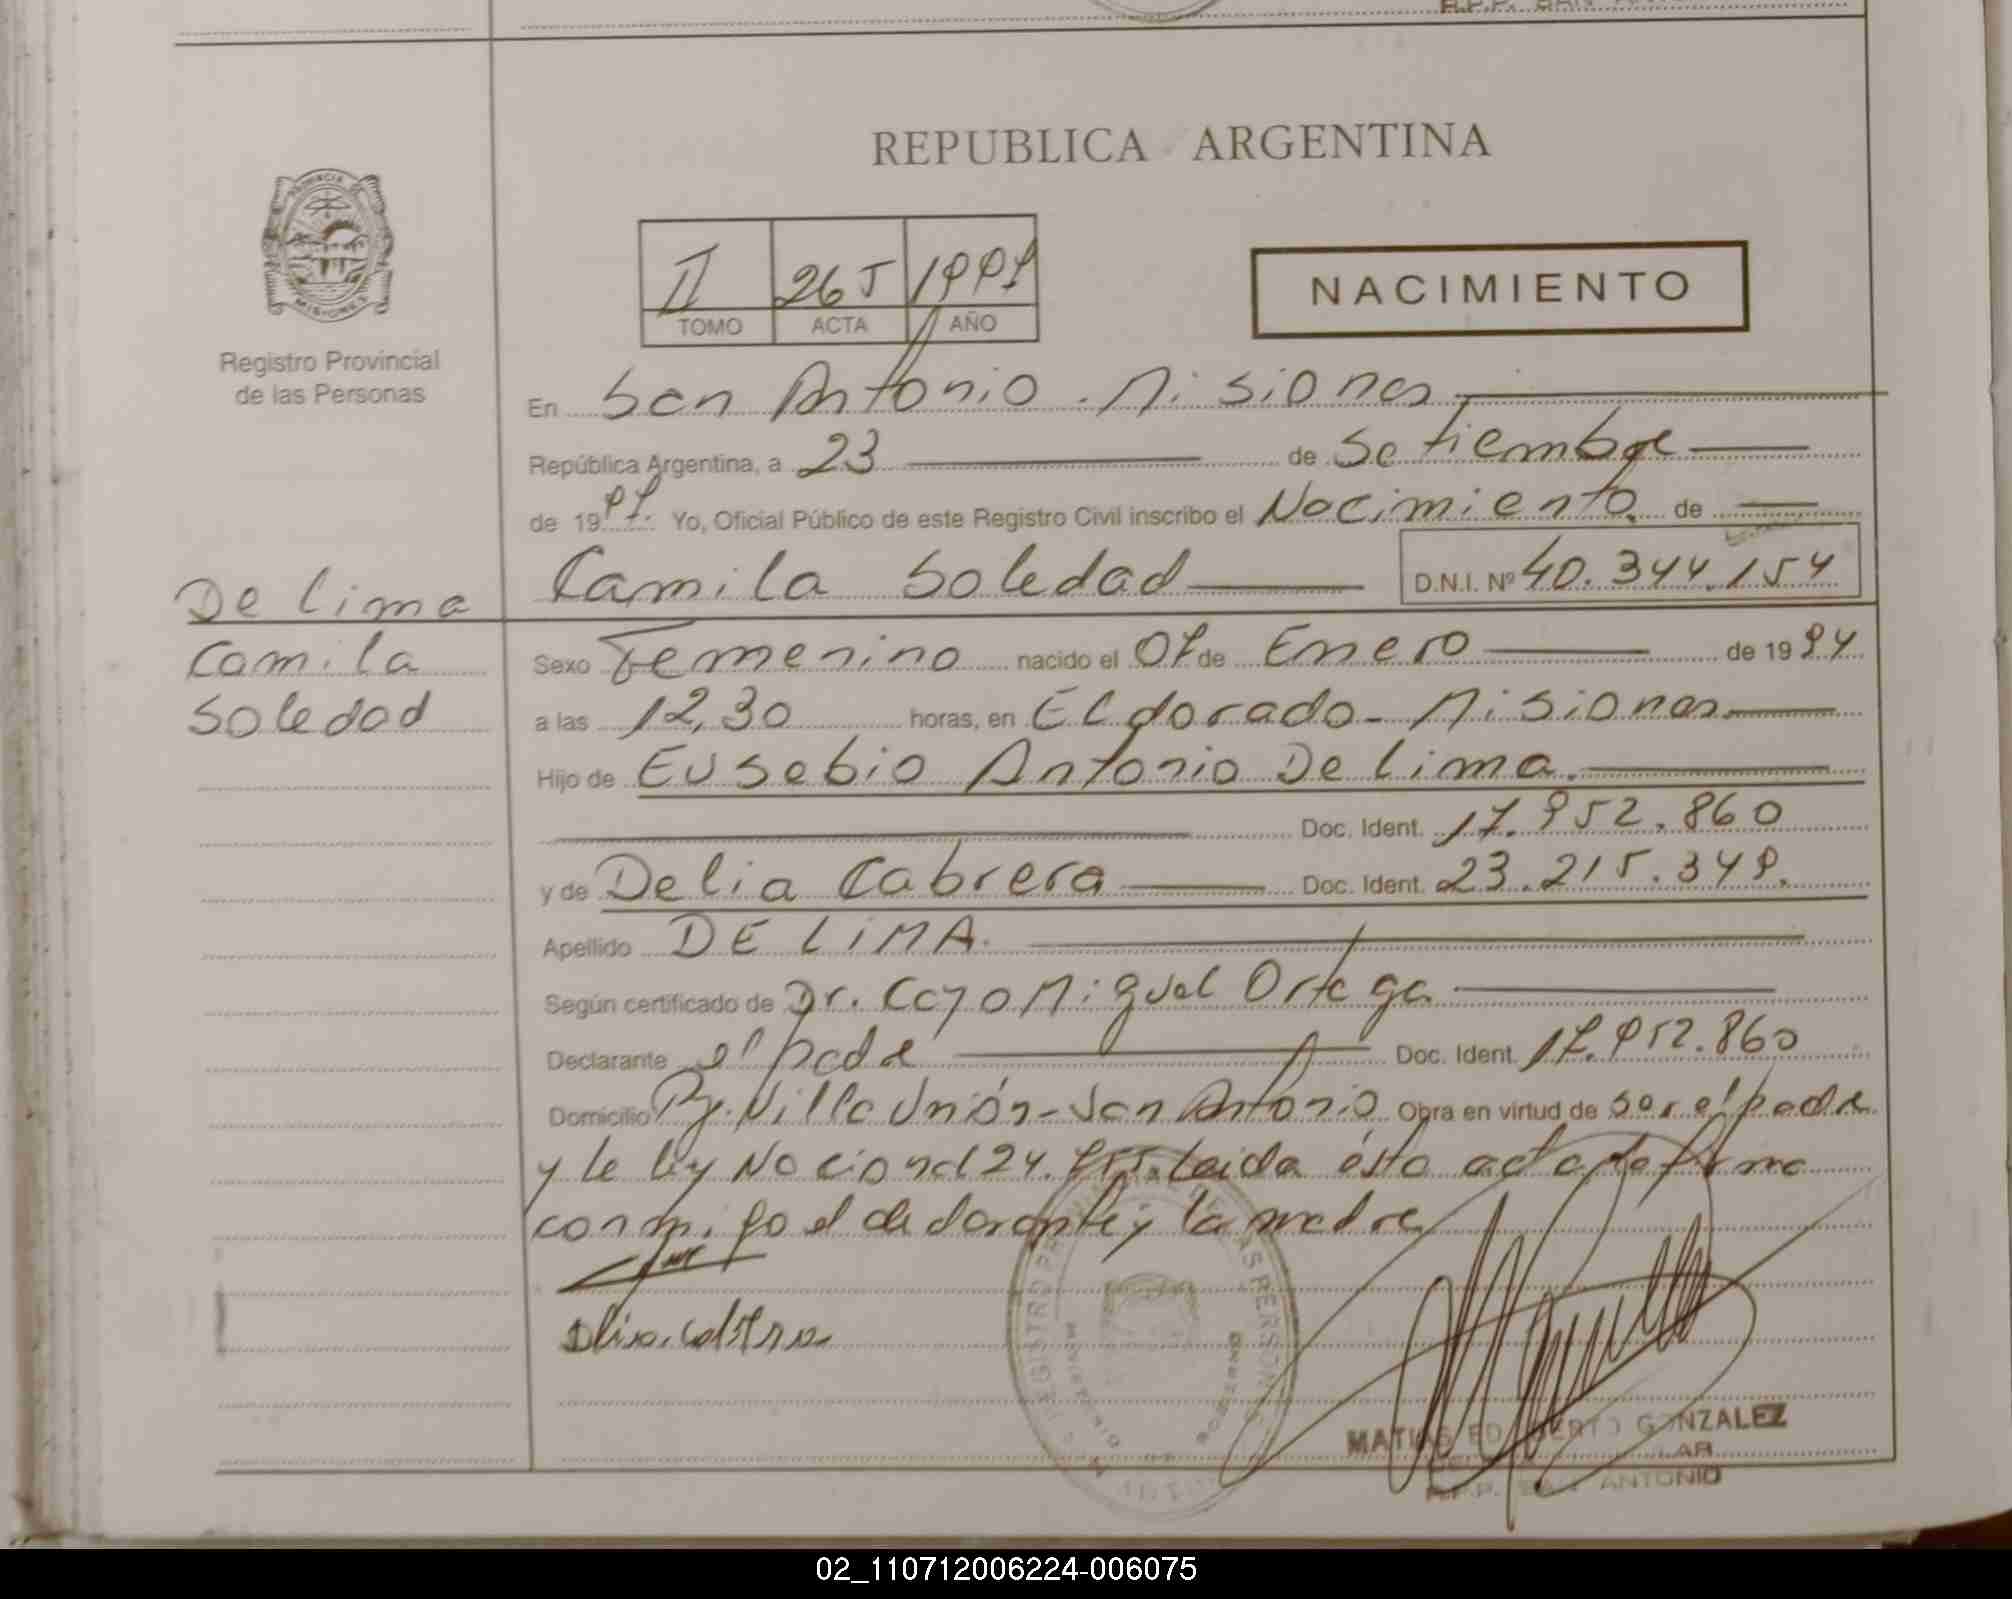 REPUBLICA ARGENTINA
PROVINCIA DE
MISIONES
Registro Provincial
de las Personas
II 265 1997
TOMO ACTA AÑO
NACIMIENTO
En San Antonio. Misiones
República Argentina, a 23 de Setiembre
de 1997. Yo, Oficial Público de este Registro Civil inscribo el Nacimiento de
Camila Soledad D.N.I. Nº 40.344.154
De lima
Camila
Soledad
Sexo Femenino nacido el 07 de Enero de 1994
a las 12,30 horas, en Eldorado - Misiones
Hijo de Eusebio Antonio De lima.
Doc. Ident. 17.952.860
y de Delia Cabrera Doc. Ident. 23.215.349.
Apellido DE LIMA.
Según certificado de Dr. Cayo Miguel Ortega
Declarante el padre Doc. Ident. 17.952.860
Domicilio Villa Unión - San Antonio Obra en virtud de ser el padre
y la ley Nacional 24. Leida ésta acta la firma
conmigo el declarante y la madre
REGISTRO PROVINCIAL DE LAS PERSONAS
MATIAS EDILBERTO GONZALEZ
R.P.P. SAN ANTONIO
02_110712006224-006075